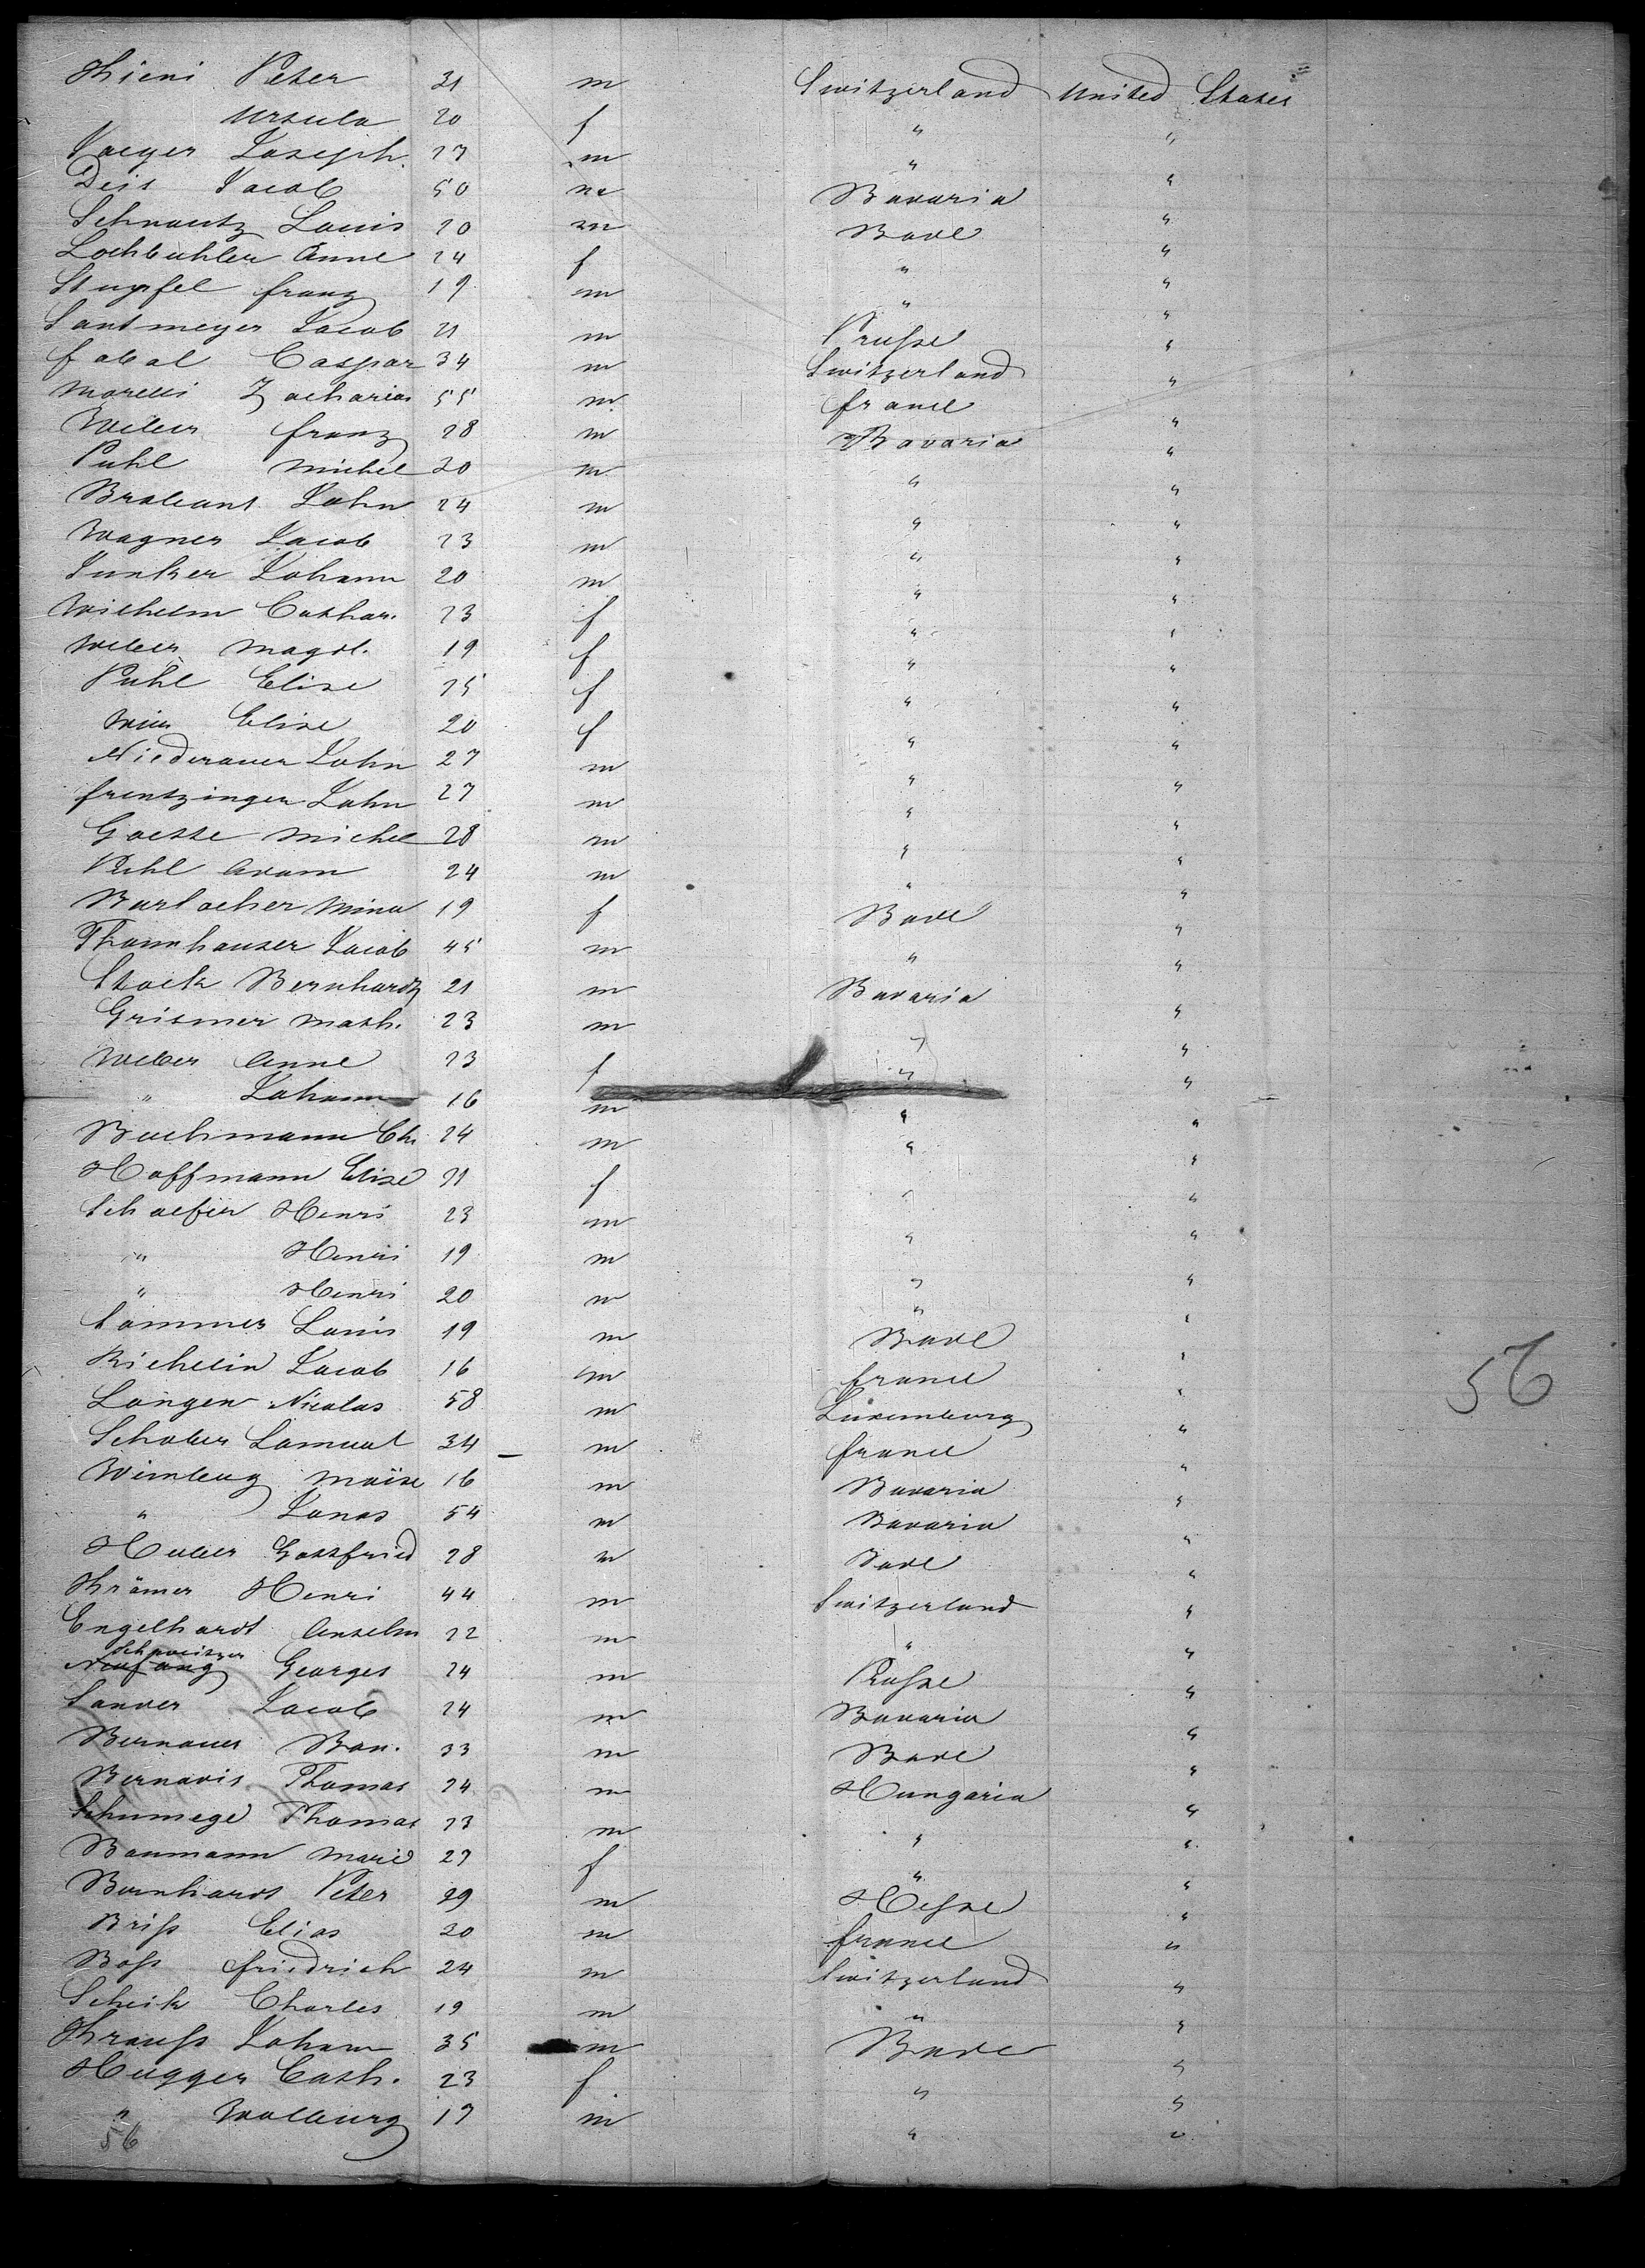 Hieni Peter 31 m Switzerland United States
Ursula 20 f " "
Jaeger Joseph. 27 m " "
Deis Jacob 50 m Bavaria "
Schnautz Louis 20 m Bade "
Lochbuhler Anne 24 f " "
Stupfel franz 19 m " "
Santmeyer Jacob 21 m Prusse "
fabal Caspar 34 m Switzerland "
Morelli Zacharias 55 m france "
Weber franz 28 m Bavaria "
Puhl Michel 20 m " "
Brabant John 24 m " "
Wagner Jacob 23 m " "
Junker Johann 20 m " "
Wilhelm Cathar. 23 f " "
Weber Magd. 19 f " "
Puhl Elise 25 f " "
Elise 20 f " "
Niederauer John 27 m " "
frentzinger John 27 m " "
Goette Michel 28 m " "
Puhl Adam 24 m " "
Burlacher Mina 19 f Bade "
Thannhauser Jacob 45 m " "
Stock Bernhardt 21 m Bavaria "
Grismer Math. 23 m " "
Weber Anne 23 f " "
" Johann 16 m " "
Bachmann Ch. 24 m " "
Hoffmann Elise 21 f " "
Schaefer Henri 23 m " "
" Henri 19 m " "
" Henri 20 m " "
Sommer Louis 19 m Bade "
Richelin Jacob 16 m france "
Langen Nicolas 58 m Luxemburg "
Schober Samuel 34 m france "
Weinberg Moïse 16 m Bavaria "
" Jonas 54 m Bavaria "
Huber Gottfried 28 m Bade "
Krämer Henri 44 m Switzerland "
Engelhardt Anselm 22 m " "
Schweitzer
Neufang Georges 24 m Prusse "
Sander Jacob 24 m Bavaria "
Bernauer Ban. 33 m Bade "
Bernavis Thomas 24 m Hungaria "
Schumege Thomas 23 m " "
Baumann Marie 27 f " "
Bernhardt Peter 29 m Hesse "
Briss Elias 20 m france "
Boss friedrich 24 m Switzerland "
Scheik Charles 19 m " "
Krauss Johann 35 m Bade "
Hugger Cath. 23 f " "
" Walburg 17 m " "
56
56